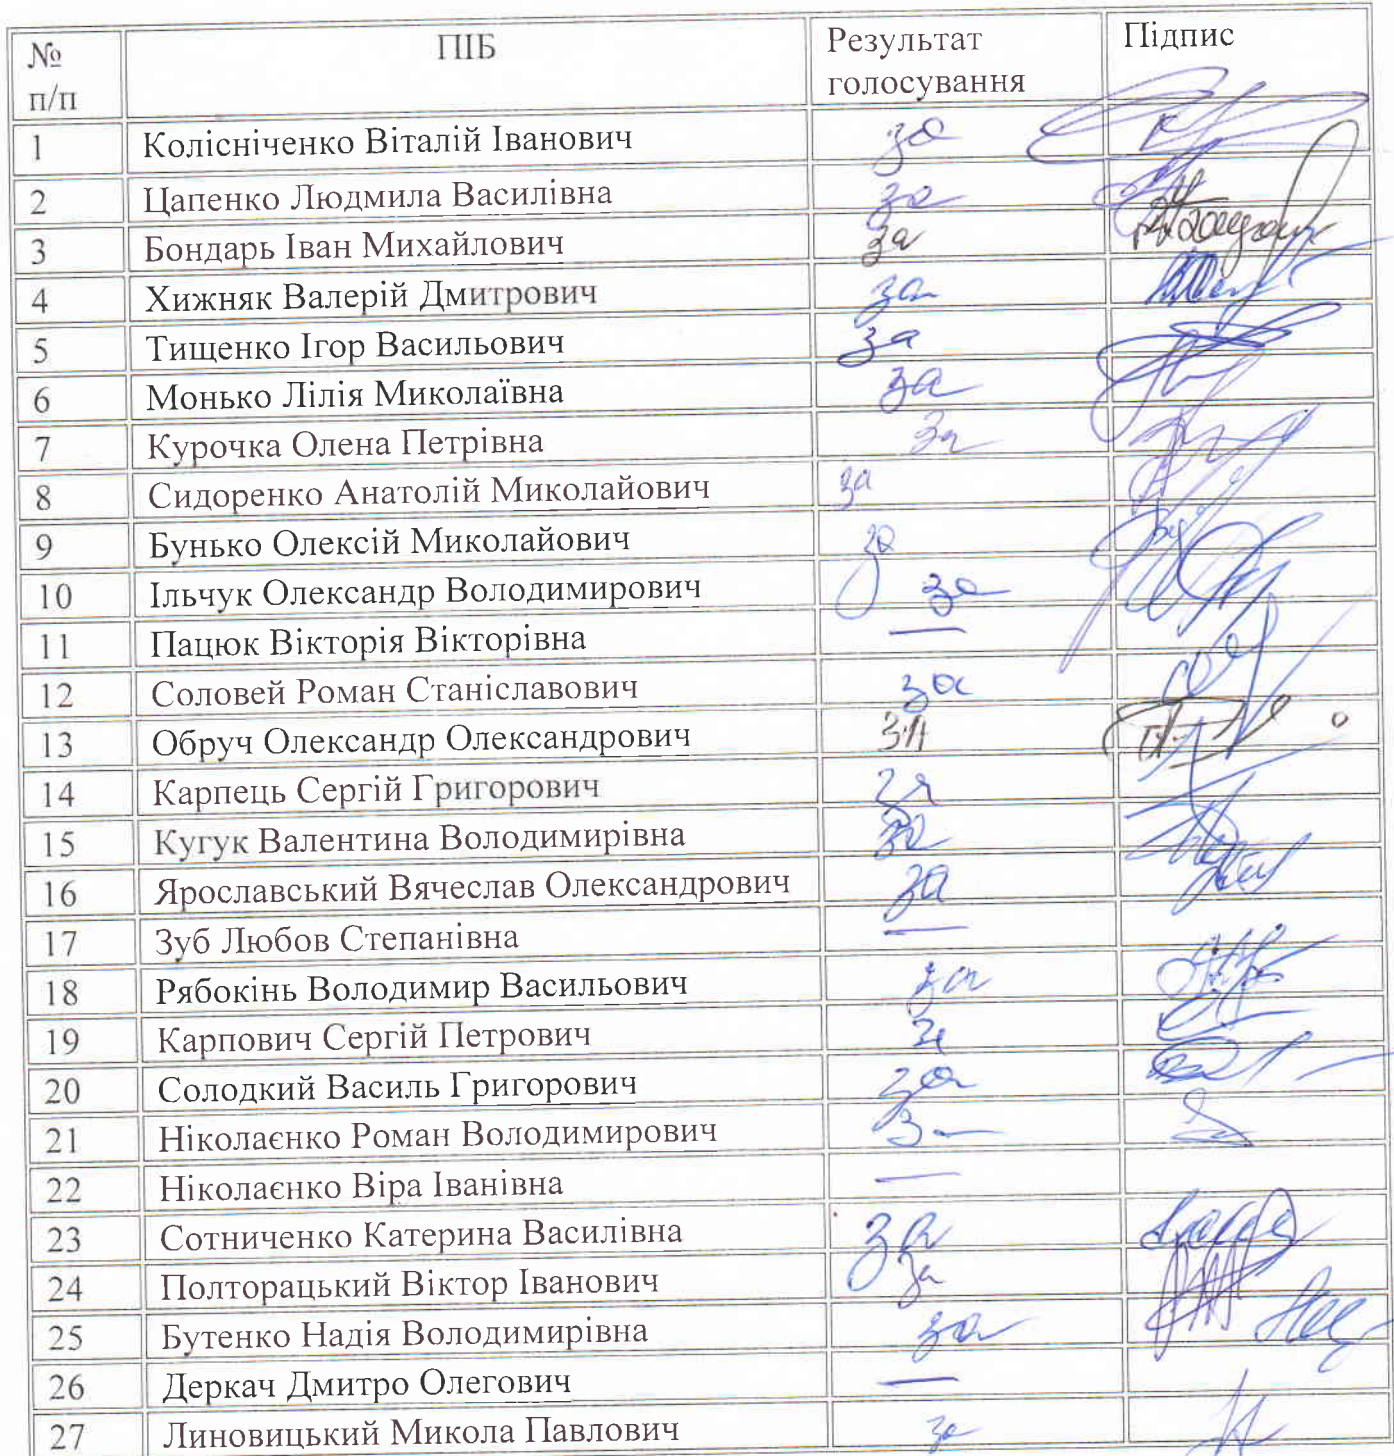 № п/п ПІБ Результат голосування Підпис
1 Колісніченко Віталій Іванович за
2 Цапенко Людмила Василівна за
3 Бондарь Іван Михайлович за
4 Хижняк Валерій Дмитрович за
5 Тищенко Ігор Васильович за
6 Монько Лілія Миколаївна за
7 Курочка Олена Петрівна за
8 Сидоренко Анатолій Миколайович за
9 Бунько Олексій Миколайович за
10 Ільчук Олександр Володимирович за
11 Пацюк Вікторія Вікторівна —
12 Соловей Роман Станіславович за
13 Обруч Олександр Олександрович ЗА
14 Карпець Сергій Григорович за
15 Кугук Валентина Володимирівна за
16 Ярославський Вячеслав Олександрович за
17 Зуб Любов Степанівна —
18 Рябокінь Володимир Васильович за
19 Карпович Сергій Петрович за
20 Солодкий Василь Григорович за
21 Ніколаєнко Роман Володимирович
22 Ніколаєнко Віра Іванівна —
23 Сотниченко Катерина Василівна за
24 Полторацький Віктор Іванович за
25 Бутенко Надія Володимирівна за
26 Деркач Дмитро Олегович —
27 Линовицький Микола Павлович за